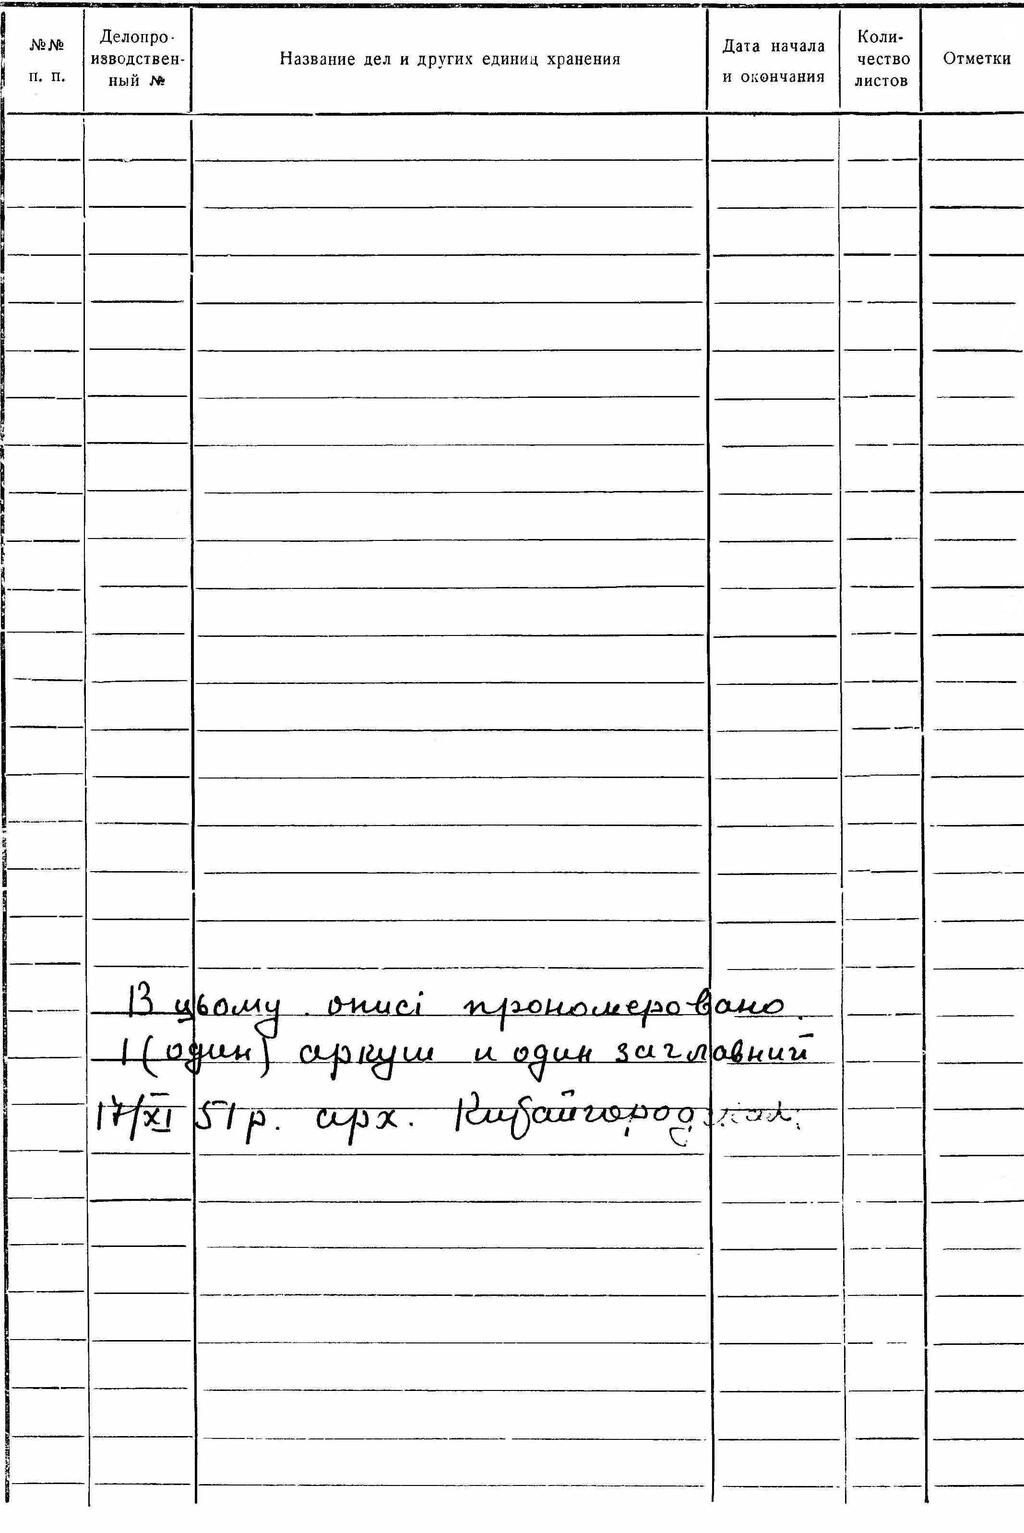 №№ п. п.
Делопро-
изводствен-
ный №
Название дел и других единиц хранения
Дата начала
и окончания
Коли-
чество
листов
Отметки
В цьому описі прономеровано.
1 (один) аркуш и один заглавний
17/XI 51 р. арх.